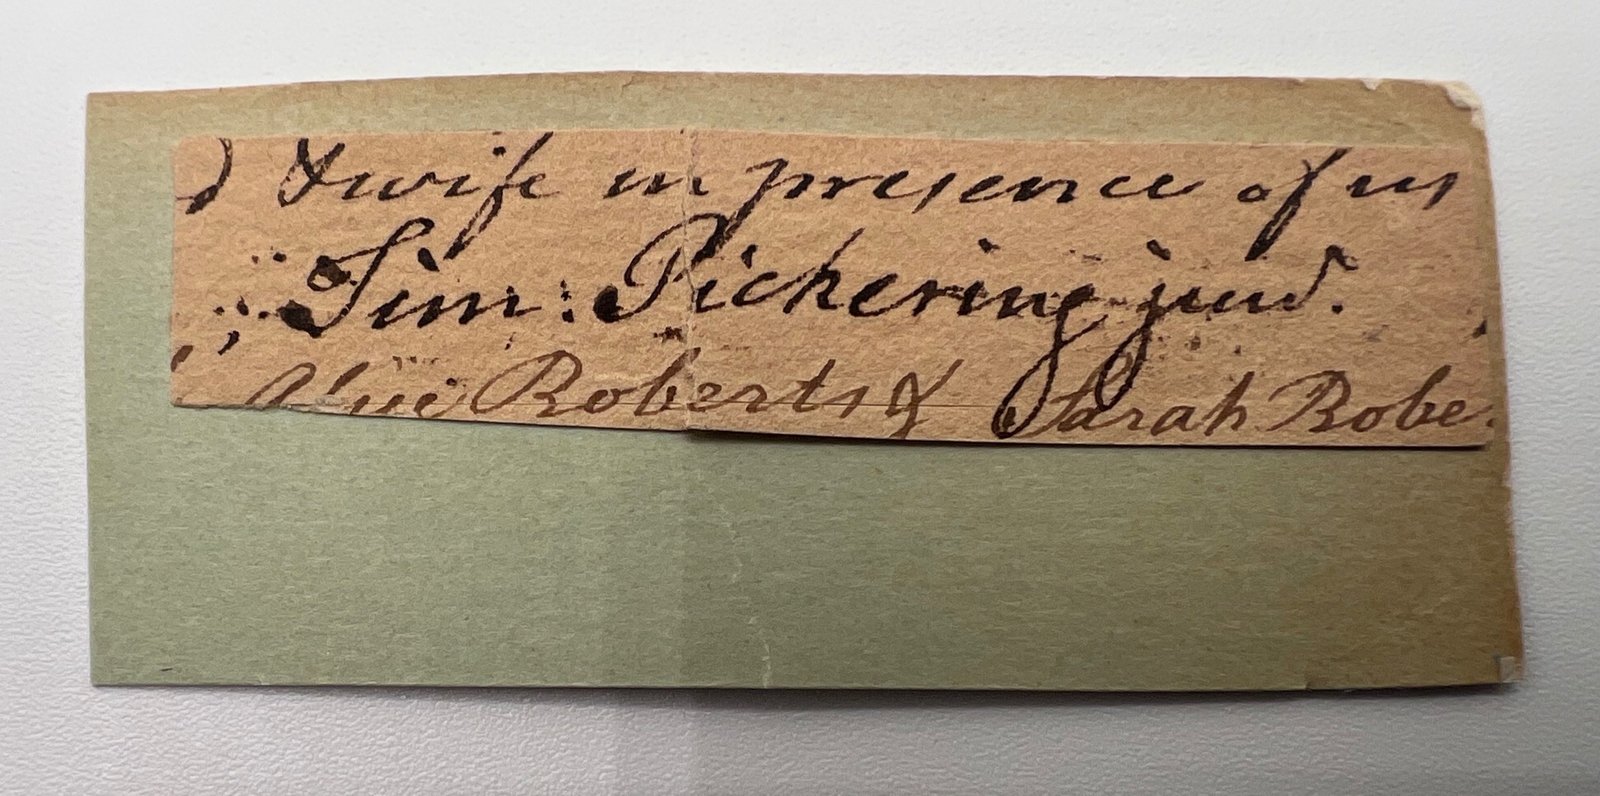 & wife in presence of us
Tim: Pickering jund.
Roberts & Sarah Robe